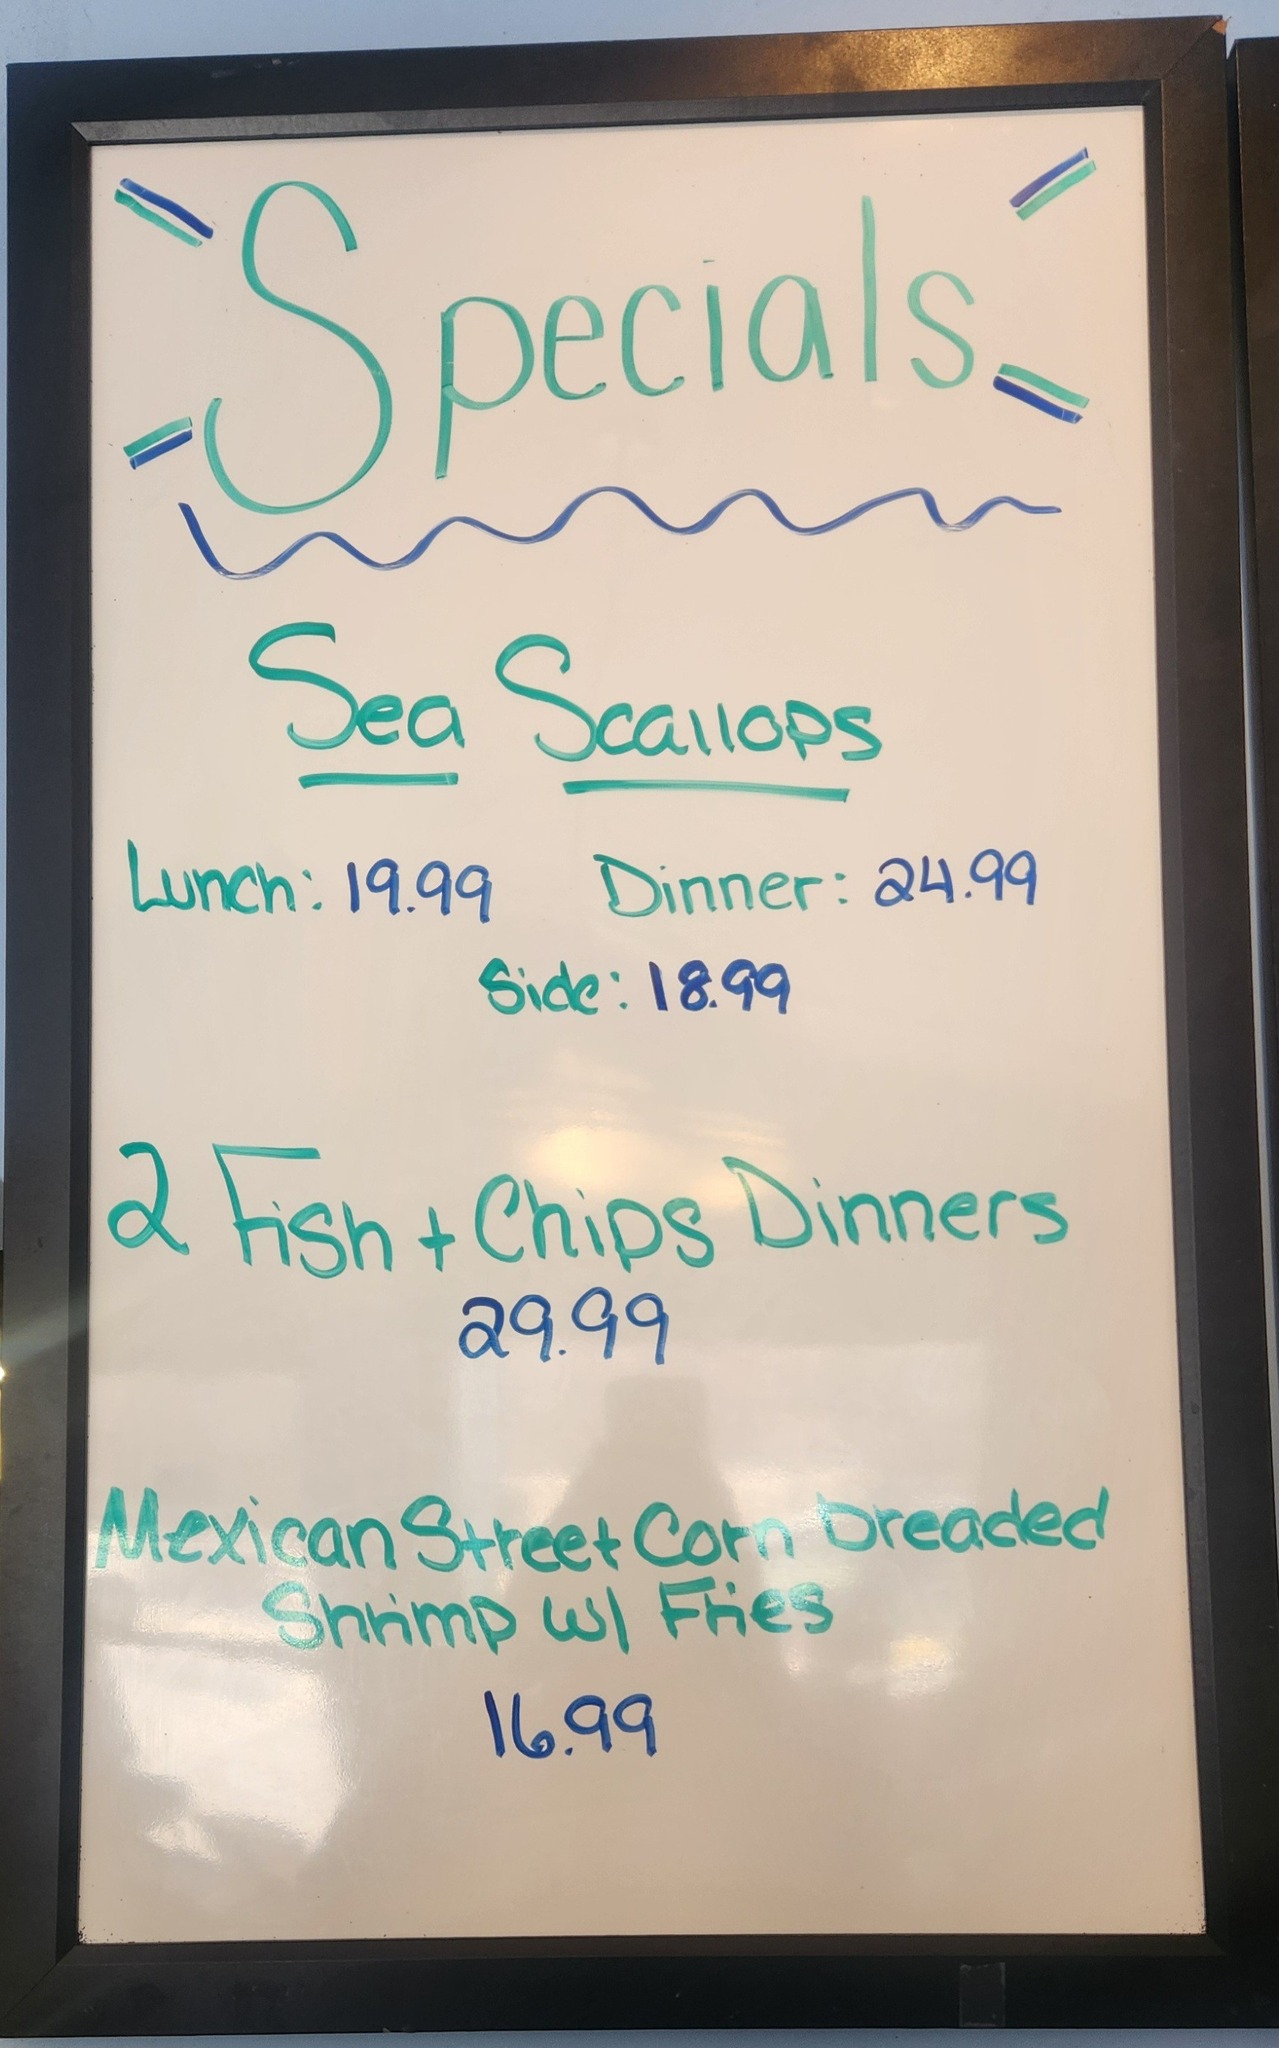 Specials
Sea Scallops
Lunch: 19.99 Dinner: 24.99
Side: 18.99
2 Fish + Chips Dinners
29.99
Mexican Street Corn breaded
Shrimp w/ Fries
16.99